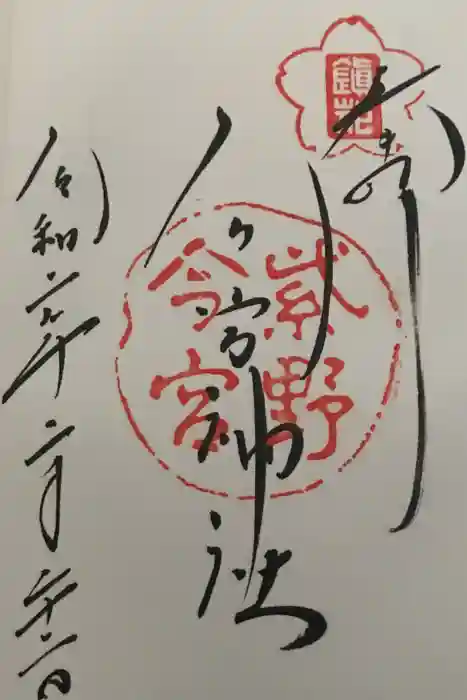 奉拝
鎮花
今宮神社
紫野
今宮
令和六年二月廿一日